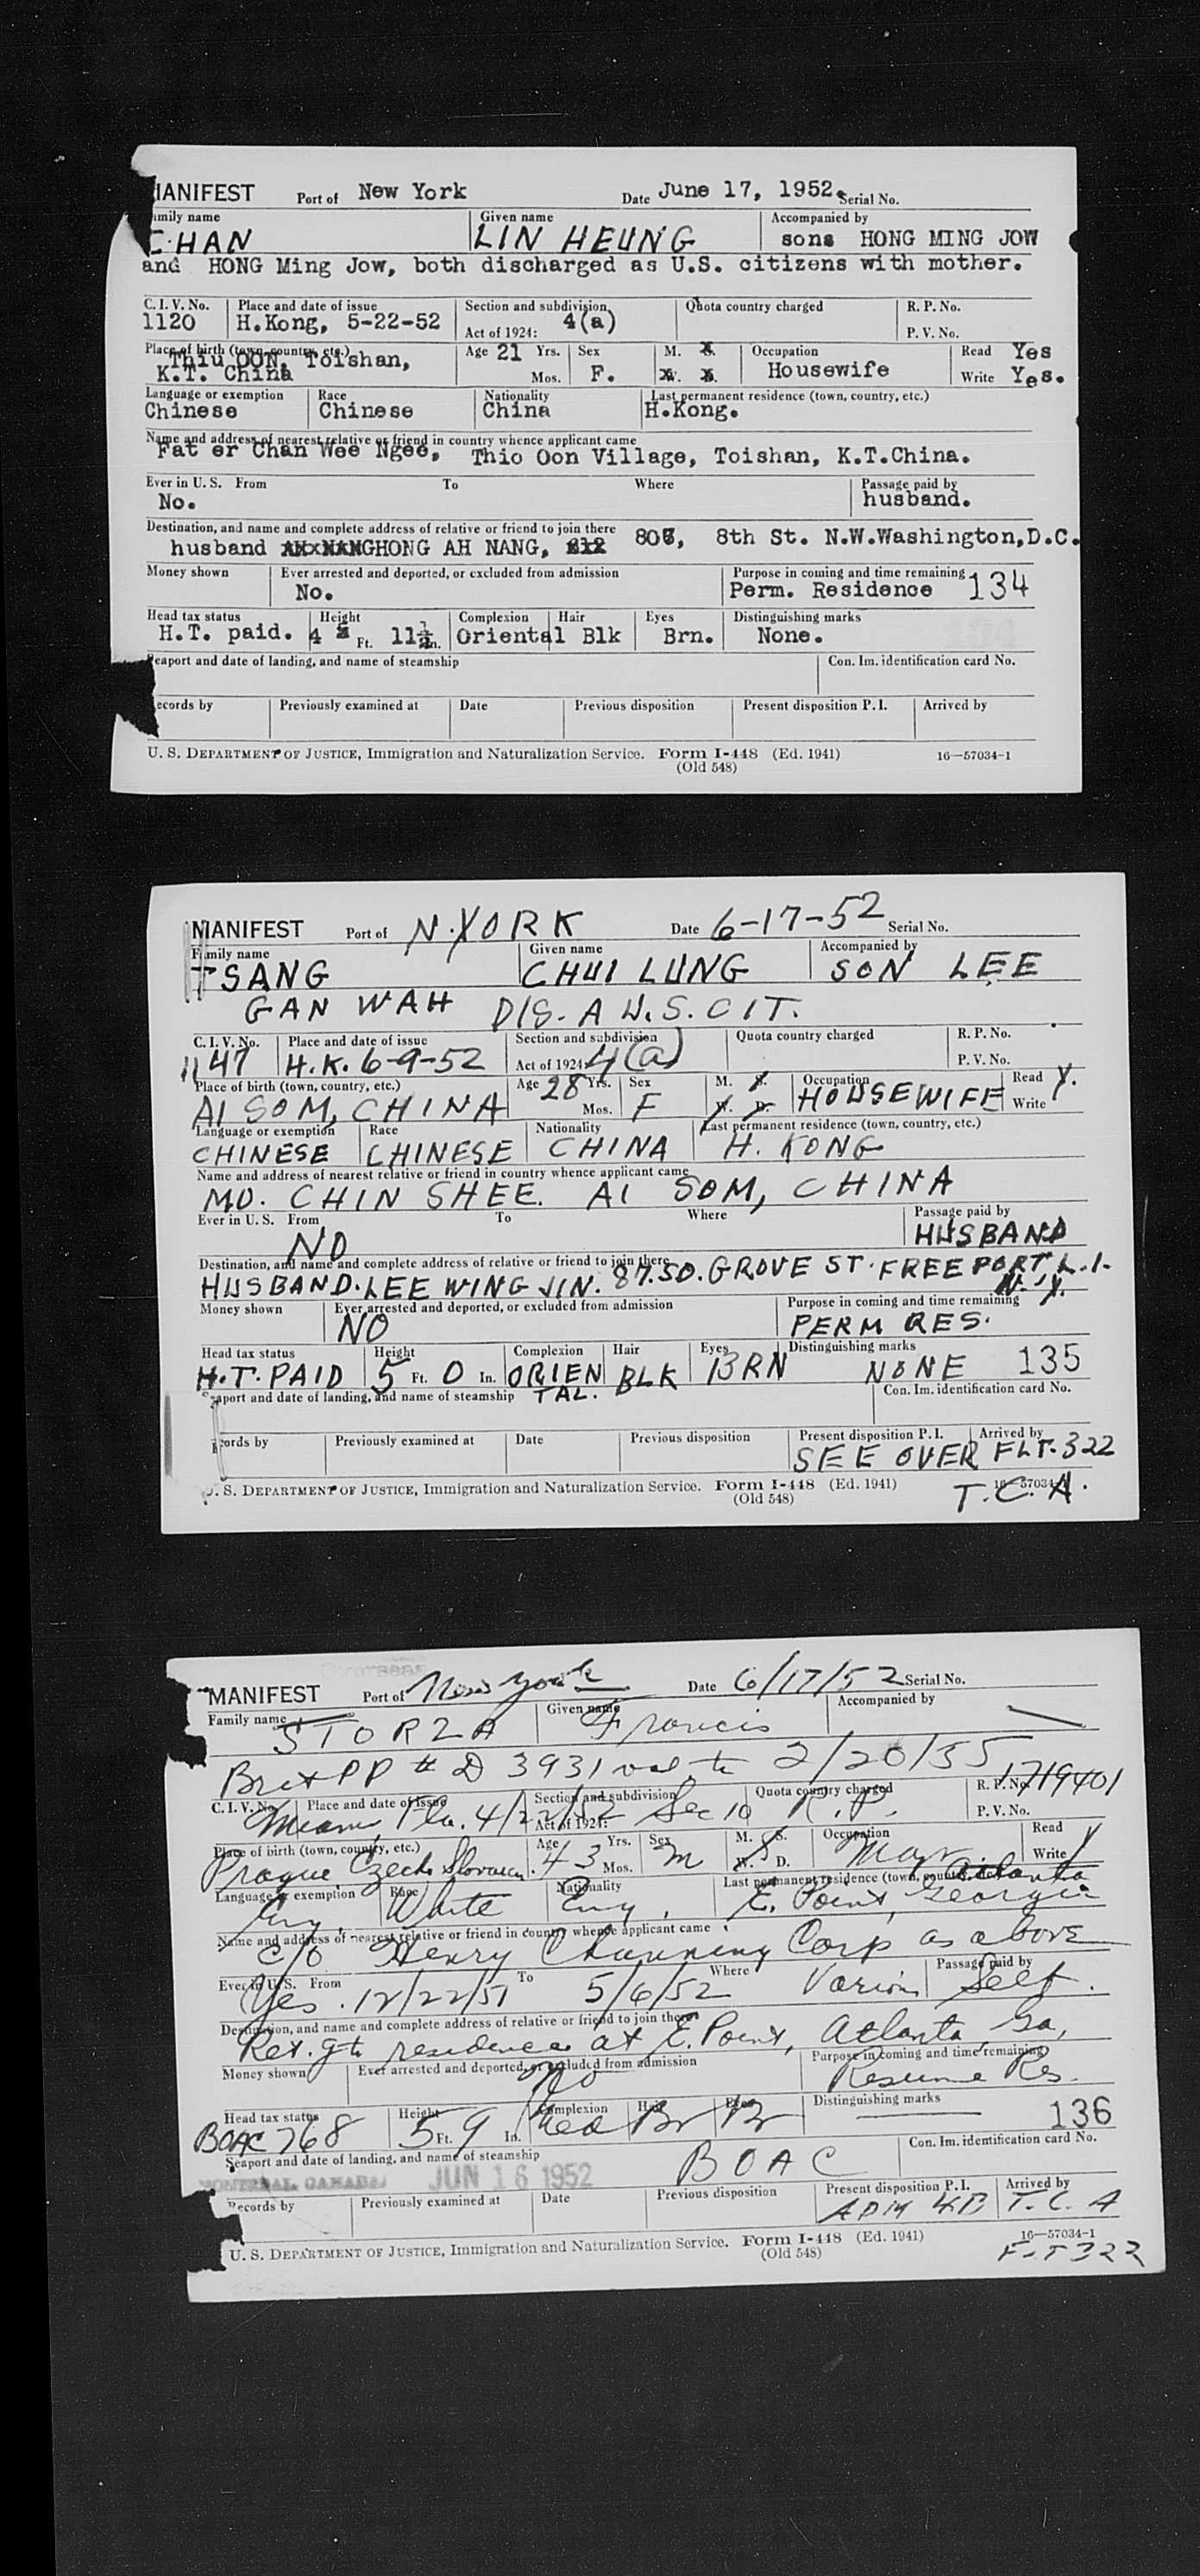 MANIFEST Port of New York Date June 17, 1952. Serial No.
Family name Given name Accompanied by
CHAN LIN HEUNG sons HONG MING JOW
and HONG Ming Jow, both discharged as U.S. citizens with mother.
C. I. V. No. Place and date of issue Section and subdivision Quota country charged R. P. No.
1120 H.Kong, 5-22-52 Act of 1924: 4(a) P. V. No.
Place of birth (town, country, etc.) Age 21 Yrs. Sex M. S. Occupation Read Yes
Thiu OON, Toishan,
K.T. China Mos. F. W. D. Housewife Write Yes.
Language or exemption Race Nationality Last permanent residence (town, country, etc.)
Chinese Chinese China H.Kong.
Name and address of nearest relative or friend in country whence applicant came
Fat er Chan Wee Ngee, Thio Oon Village, Toishan, K.T.China.
Ever in U.S. From To Where Passage paid by
No. husband.
Destination, and name and complete address of relative or friend to join there
husband HONG AH NANG, 8th St. N.W.Washington,D.C.
Money shown Ever arrested and deported, or excluded from admission Purpose in coming and time remaining
No. Perm. Residence 134
Head tax status Height Complexion Hair Eyes Distinguishing marks
H.T. paid. 4 Ft. 11½ In. Oriental Blk Brn. None.
Seaport and date of landing, and name of steamship Con. Im. identification card No.
Records by Previously examined at Date Previous disposition Present disposition P. I. Arrived by
U. S. DEPARTMENT OF JUSTICE, Immigration and Naturalization Service. Form I-448 (Ed. 1941) 16—57034-1
(Old 548)
MANIFEST Port of N.YORK Date 6-17-52 Serial No.
Family name Given name Accompanied by
TSANG CHUI LUNG SON LEE
GAN WAH DIS. A U.S. CIT.
C. I. V. No. Place and date of issue Section and subdivision Quota country charged R. P. No.
1147 H.K. 6-9-52 Act of 1924: 4(a) P. V. No.
Place of birth (town, country, etc.) Age 28 Yrs. Sex M. S. Occupation Read Y.
AI SOM, CHINA Mos. F W. D. HOUSEWIFE Write
Language or exemption Race Nationality Last permanent residence (town, country, etc.)
CHINESE CHINESE CHINA H. KONG
Name and address of nearest relative or friend in country whence applicant came
MO. CHIN SHEE. AI SOM, CHINA
Ever in U.S. From To Where Passage paid by
NO HUSBAND
Destination, and name and complete address of relative or friend to join there
HUSBAND. LEE WING JIN. 87. SO. GROVE ST. FREEPORT, L.I.
N.Y.
Money shown Ever arrested and deported, or excluded from admission Purpose in coming and time remaining
NO PERM RES.
Head tax status Height Complexion Hair Eyes Distinguishing marks
H.T. PAID 5 Ft. 0 In. ORIEN BLK BRN NONE 135
Seaport and date of landing, and name of steamship TAL. Con. Im. identification card No.
Records by Previously examined at Date Previous disposition Present disposition P. I. Arrived by
SEE OVER FLT. 322
U. S. DEPARTMENT OF JUSTICE, Immigration and Naturalization Service. Form I-448 (Ed. 1941) 16—57034-1
(Old 548) T.C.A.
Overseas
MANIFEST Port of New York Date 6/17/52 Serial No.
Family name Given name Accompanied by
STORZA Francis
Brit PP # D 3931 val to 2/20/55
C. I. V. No. Place and date of issue Section and subdivision Quota country charged R. P. No. 1719401
Miami Fla. 4/22/52 Act of 1924: Sec 10 R.P. P. V. No.
Place of birth (town, country, etc.) Age 43 Yrs. Sex M. S. Occupation Read
Prague, Czecho Slovakia. Mos. M W. D. Write Y
Language or exemption Race Nationality Last permanent residence (town, country, etc.) Atlanta
Eng. White Eng. E. Point, Georgia
Name and address of nearest relative or friend in country whence applicant came
c/o Henry Channing Corp as above
Ever in U.S. From To Where Passage paid by
Yes. 12/22/51 5/6/52 Various Self.
Destination, and name and complete address of relative or friend to join there
Ret. g to residence at E. Point, Atlanta, Ga,
Money shown Ever arrested and deported, or excluded from admission Purpose in coming and time remaining
No Resume Res.
Head tax status Height Complexion Hair Eyes Distinguishing marks
BOAC 768 5 Ft. 9 In. Br Br 136
Seaport and date of landing, and name of steamship BOAC Con. Im. identification card No.
MONTREAL, CANADA JUN 16 1952
Records by Previously examined at Date Previous disposition Present disposition P. I. Arrived by
T. C. A
U. S. DEPARTMENT OF JUSTICE, Immigration and Naturalization Service. Form I-448 (Ed. 1941) 16—57034-1
(Old 548) FLT 322